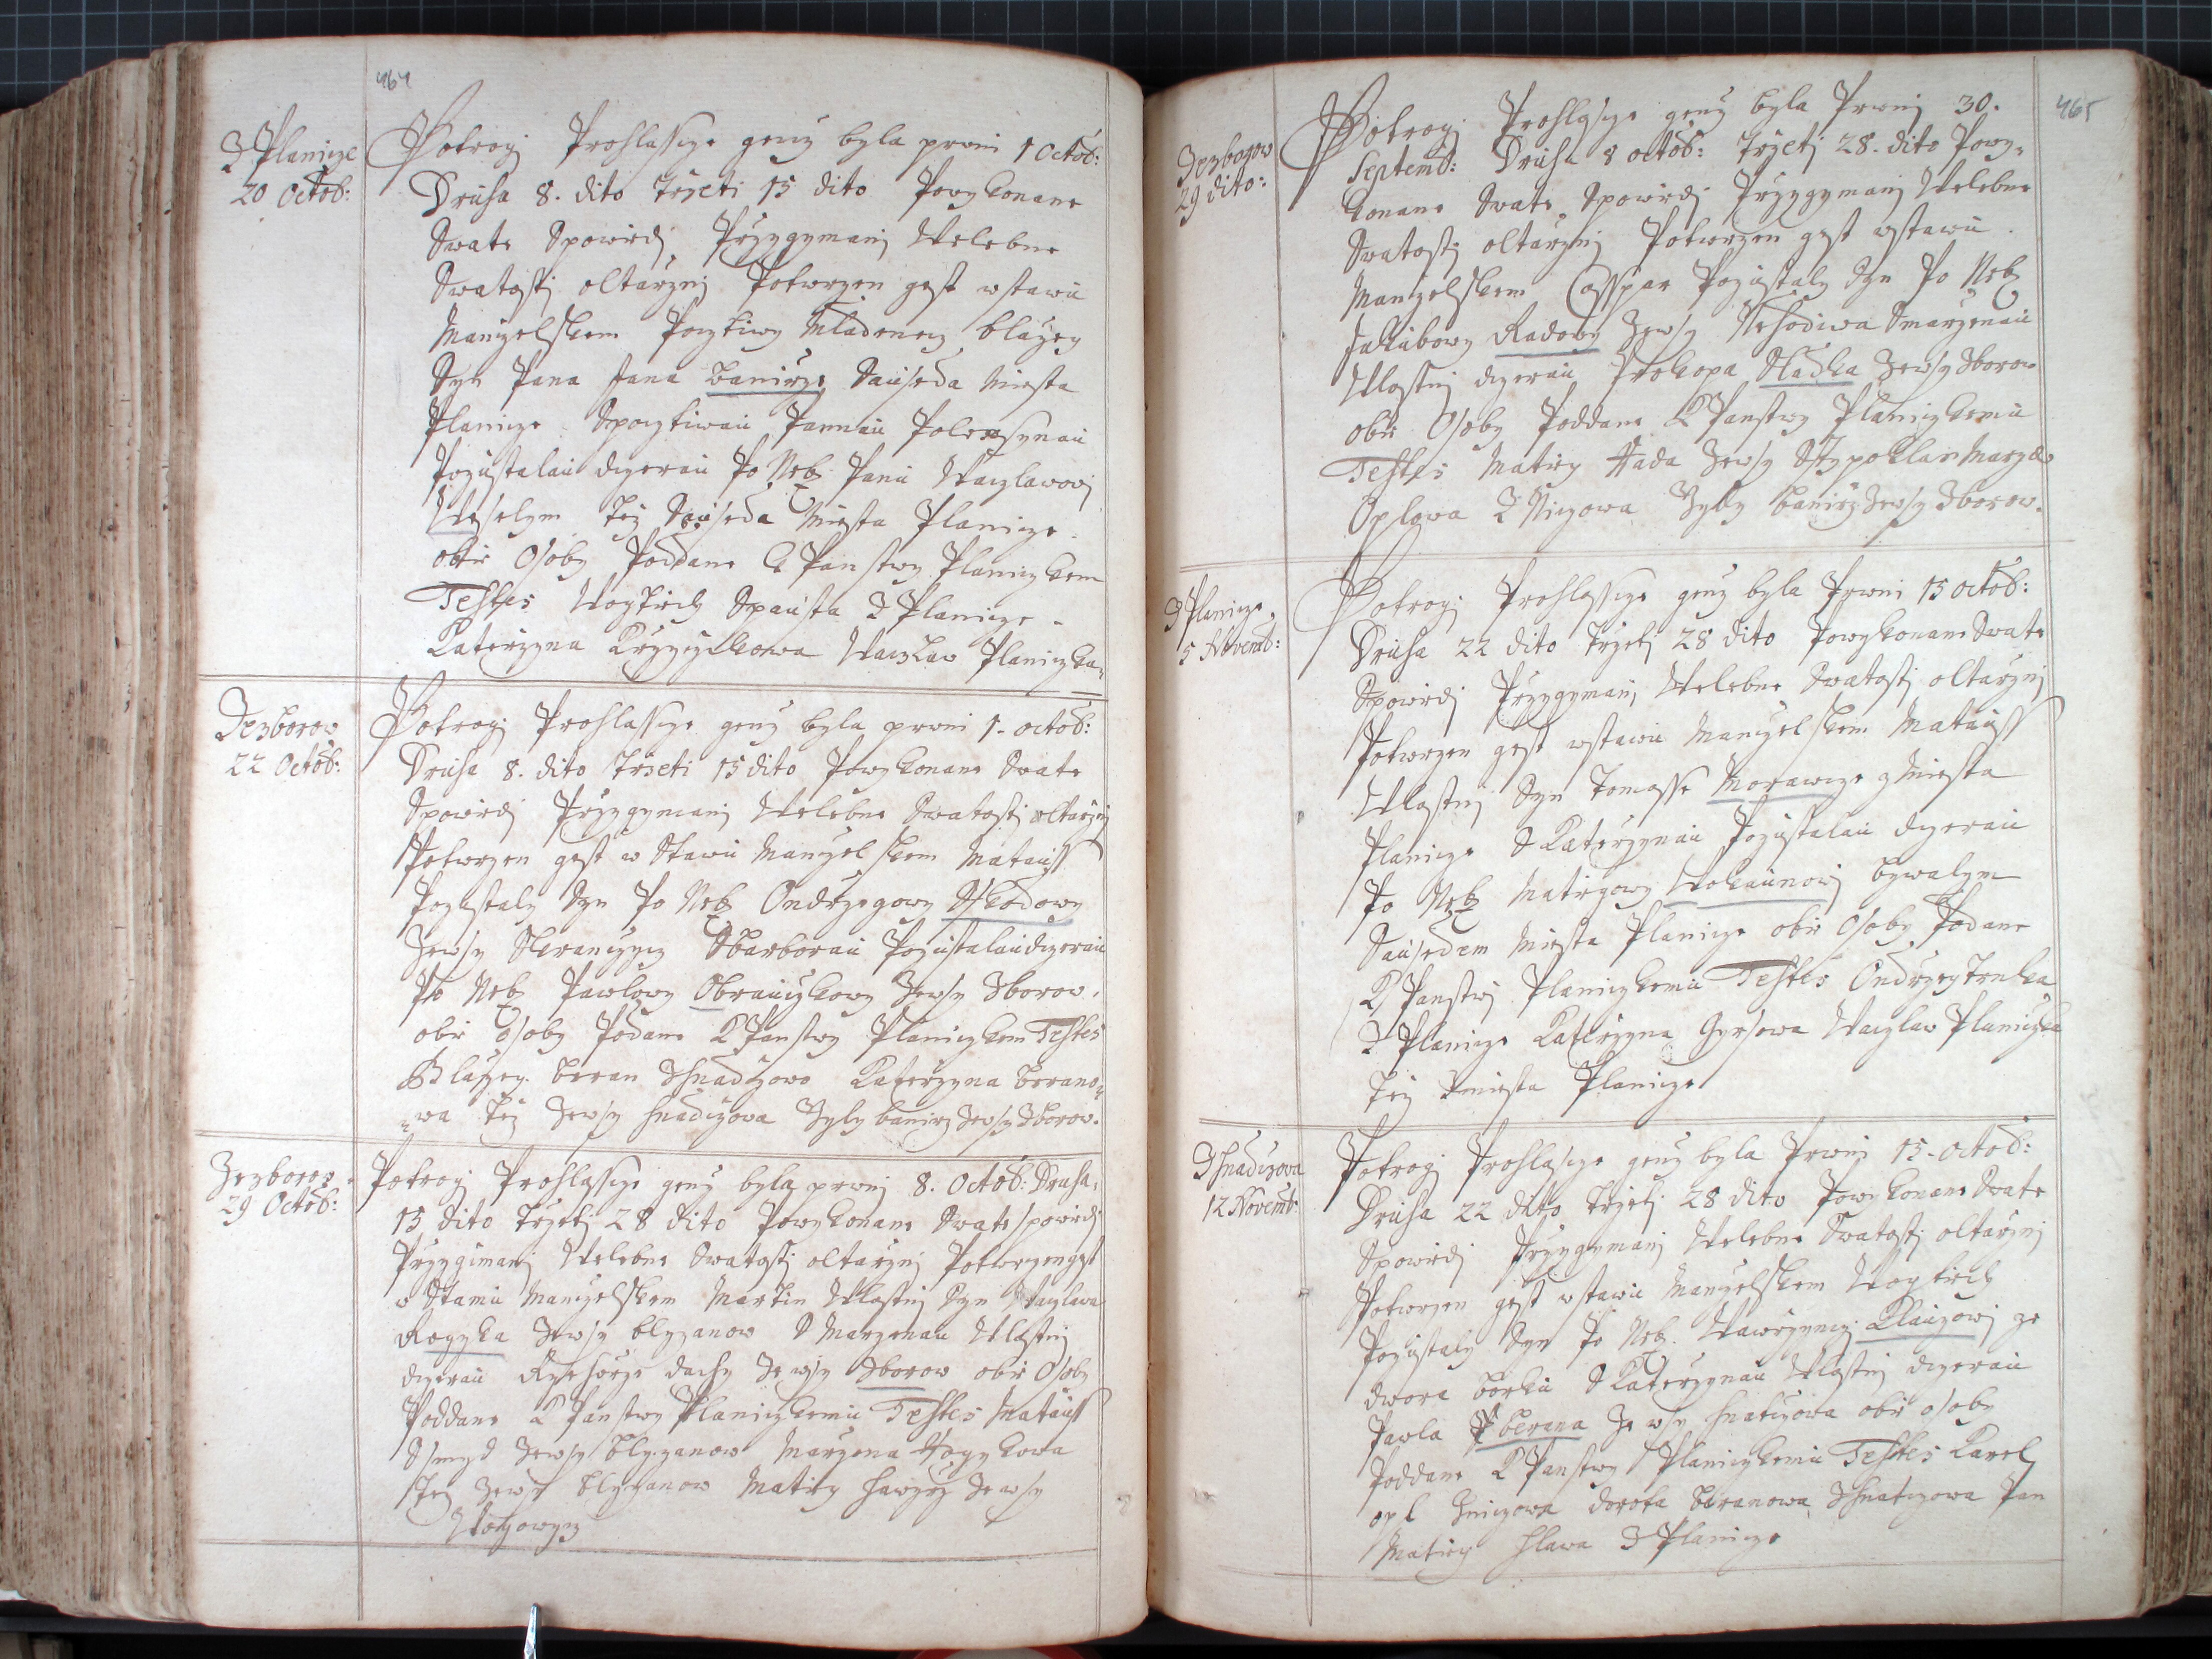 464
Z Planicze
20 Octob:
Potrogj Prohlassyze genz byla prwni 1 Octob:
Druha 8. dito Trzeti 15 dito Powykonane
Swate Spowiedj Przygymanj Welebne
Swatostj oltarznj Potwrzen gest wstawu
Manzelskem Pocztiwy Mladenecz blazey
Syn Pana Jana banirze Sauseda Miesta
Planicze Spocztiwau Pannau Polexynau
Pozustalau dczerau Po Neb: Panu Waczlawowj
Weselym tez Sauseda Miesta Planicze
obie Osoby Poddane k Panstwy Planiczkem
Testes Wogtiech Spausta Z Planicze
Katerzyna Krzyczkowa Waczlaw Planiczka
Zezborow
22 Octob:
Potrogj Prohlassyze genz byla prwni 1. octob:
Druha 8. dito Trzeti 15 dito Powykonane Swate
Spowiedj Przygymanj Welebne Swatostj oltarznj
Potwrzen gest w Stawu Manzelskem Matauss
Pozustaly Syn Po Neb Ondrzegowy Sskodowy
Zewsy Skranczycz Sbarborau Pozustalau dczerau
Po Neb Pawlowy Obrauczkowy Zewsy Zborow.
obie osoby Podane K Panstwy Planiczkem Testes
Blazey beran Zhnadczowa Katerzyna berano=
=wa tez Zewsy hnadczowa Zyly banirz Zewsy Zborow.
Zezborow
29 Octob:
Potrogj Prohlassyze genz byla prwnj 8. Octob: Druha
15 dito Trzetj 28 dito Powykonane Swate spowiedj
Przygimanj Welebne Swatostj oltarznj Potwrzen gest
w Stawu Manzelskem Martin Wlastnj Syn Waczlawa
Zewsy blyzanow S Marzenau Wlastnj
dczerau Rzehorze dachy Ze wsy Zborow obie Osoby
Poddane K Panstwy Planiczkemu Testes Matauss
Ssmyd Zewsy blyzanow Marzena
tez Zewsy blyzanow Matiey hawrzy Ze wsy
465
Zezborow
29 dito:
Potrogj Prohlasyze genz byla Prwnj 30.
Septemb: Druha 8 octob: Trzetj 28. dito Powy=
konane Swate Spowiedj Przygymanj Welebne
Swatostj oltarznj Potwrzen gest wstawu
Manzelskem Casspar Pozustaly Syn Po Neb
Jakubowy Radowy Zewsy Nehodiwa Smarzenau
Wlastnj dczerau Prokopa Sladka Zewsy Zborow
obie Osoby Poddane K Panstwy Planiczkemu
Testes Matiey Hada Zewsy Marzena
Oplowa Z Niczowa Zyly banirz Zewsy Zborow.
Z Planicze
5 Novemb:
Potrogj Prohlassyze genz byla Prwni 15 octob:
Druha 22 dito Trzetj 28 dito Powykonane Swate
Spowiedj Przygymanj Welebne Swatostj oltarznj
Potwrzen gest wstawu Manzelskem Matauss
Wlastnj Syn Tomasse Morawcze z Miesta
Planicze S Katerzynau Pozustalau dczerau
Po Neb Matiegowy Wokaunowj bywalym
Sausedem Miesta Planicze obie Osoby Podane
K Panstwj Planiczkemu Testes Ondrzey Trnka
Z Planicze Katerzyna Gyrsowa Waczlaw Planiczka
tez Zmiesta Planicze
Zhnadczowa
12 Novemb:
Potrogj Prohlasyze genz byla Prwnj 15. octob:
Druha 22 dito Trzetj 28 dito Powykonane Swate
Spowiedj Przygymanj Welebne Swatostj oltarznj
Potwrzen gest wstawu Manzelskem Wogtiech
Pozustaly Syn Po Neb. Wawrzynczj Klauzowj ze
dwora borku S Katerzynau Wlastnj dczerau
Pawla berana Ze wsy hnatczowa obie osoby
Poddane K Panstwy Planiczkemu Testes Karel
opl Zniczowa dorota beranowa Zhnatczowa Pan
Matiey hlawa Z Planicze